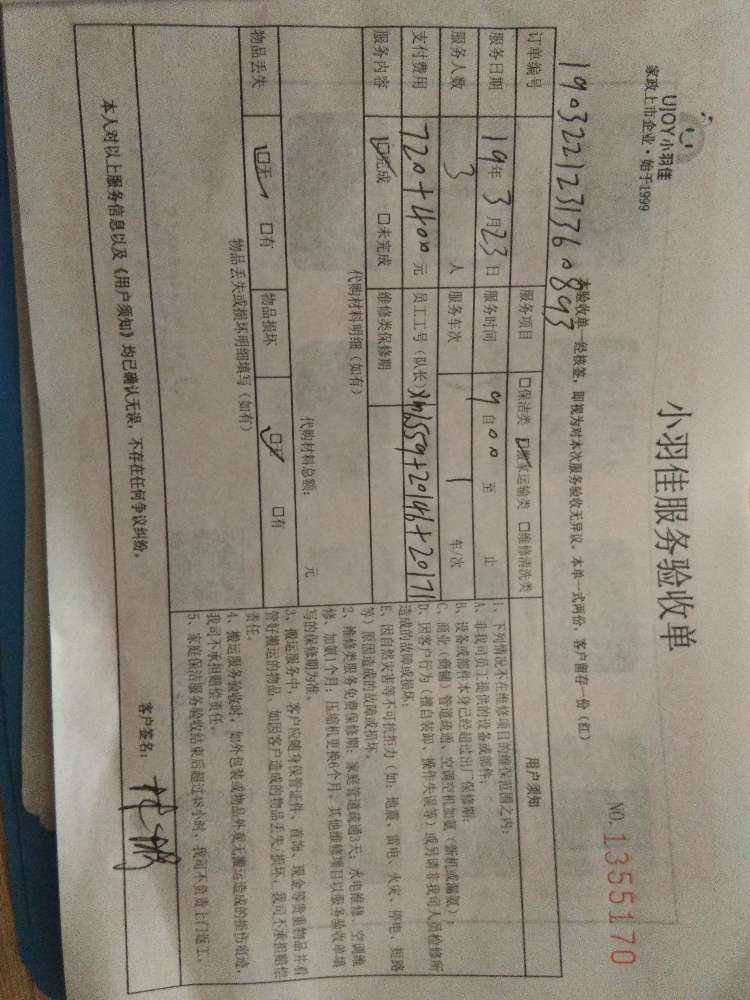 UJOY小羽佳
家政上市企业·始于1999
小羽佳服务验收单
NO.1355170
本验收单一经核签，即视为对本次服务验收无异议。本单一式两份，客户留存一份（红）
订单编号 1903221231360893
服务项目 □保洁类 ☑搬家运输类 □维修清洗类
服务日期 19年3月23日 服务时间 9自00至 止
服务人数 3 人 服务车次 1 车/次
支付费用 720+400 元 员工工号（队长） xm6559+20146+20171
服务内容 ☑完成 □未完成 维修类保修期
代购材料明细（如有）
代购材料总额： 元
物品丢失 ☑无 □有 物品损坏 ☑无 □有
物品丢失或损坏明细填写（如有）
用户须知
1、下列情况不在维修项目的维保范围之内：
A、非我司员工提供的设备或部件；
B、设备或部件本身已经超过出厂保修期；
C、商业（商铺）管道疏通、空调空机加氨（新机或漏氨）；
D、因客户行为（擅自装卸、操作失误等）或另请非我司人员检修所
造成的故障或损坏；
E、因自然灾害等不可抗拒力（如：地震、雷电、火灾、停电、短路
等）原因造成的故障或损坏。
2、维修类服务免费保修期：家庭管道疏通3天，水电维修、空调维
修、加氨1个月；压缩机更换6个月，其他维修项目以服务验收单填
写的保修期为准。
3、搬运服务中，客户应随身保管证件、首饰、现金等贵重物品并看
管好搬运的物品，如因客户造成的物品丢失/损坏，我司不承担赔偿
责任。
4、搬运服务验收时，如外包装或物品外观无搬运造成的损伤痕迹，
我司不承担赔偿责任。
5、家庭保洁服务验收结束后超过48小时，我司不负责上门返工。
本人对以上服务信息以及《用户须知》均已确认无误，不存在任何争议纠纷。
客户签名：